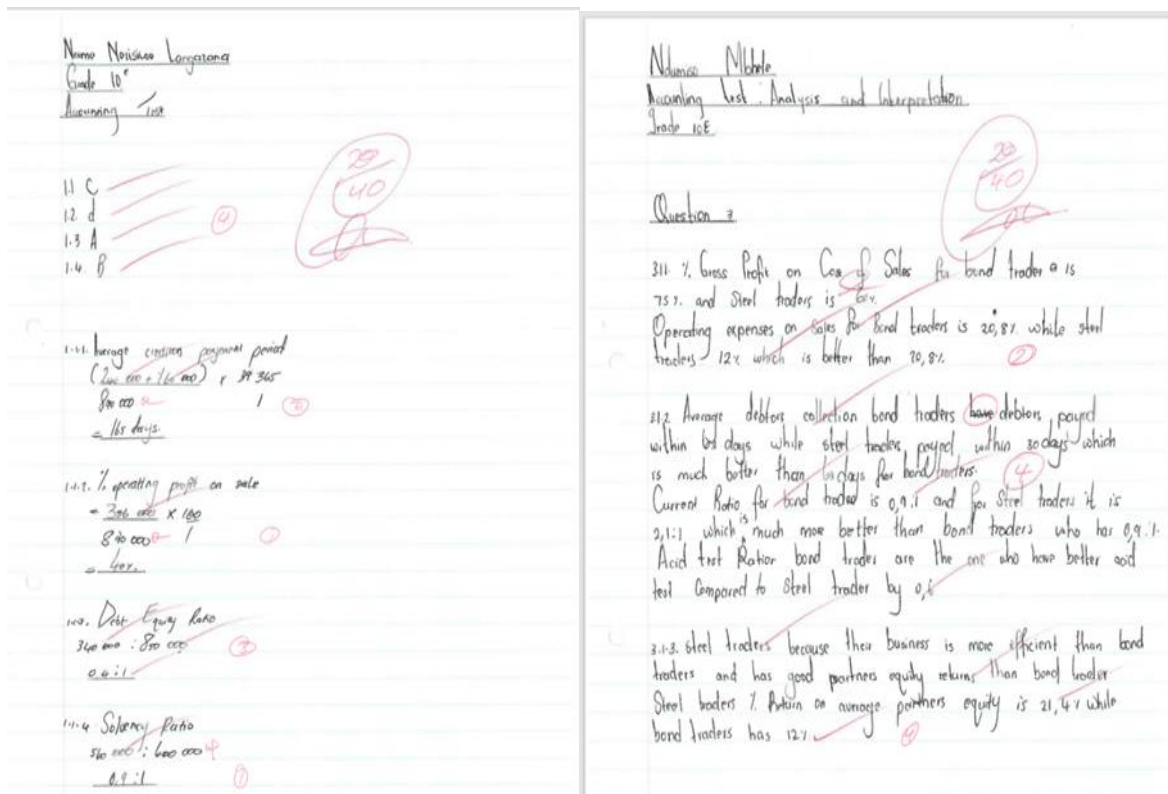 Grade 10E
Accounting Test
28
40
1.1 C
1.2 d
1.3 A
1.4 B
4
Average payment period
(240 000 + 160 000) x 365
800 000 1
= 165 days.
% operating profit on sale
= 396 000 x 100
890 000 1
= 40%.
Debt Equity Ratio
340 000 : 850 000
0.4:1
3
1.1.4 Solvency Ratio
540 000 : 600 000
0.9:1
1
Ndumiso
Accounting test: Analysis and Interpretation
Grade 10E
28
40
Question 3
3.1.1. % Gross Profit on Cost of Sales for bond trader is
75% and Steel traders is 60%
Operating expenses on Sales for Bond traders is 20,8% while steel
traders 12% which is better than 20,8%.
2
3.1.2 Average debtors collection bond traders have debtors payed
within days while steel traders payed within 30 days which
is much better than days for bond traders.
4
Current Ratio for bond traded is 0,9:1 and for Steel traders it is
2,1:1 which is much more better than bond traders who has 0,9:1.
Acid test Ratior bond trades are the one who have better acid
test Compared to Steel trader by 0,6
3.1.3. Steel traders because their business is more efficient than bond
traders and has good partners equity returns than bond trader
Steel traders % Return on average partners equity is 21,4% while
bond traders has 12%
4